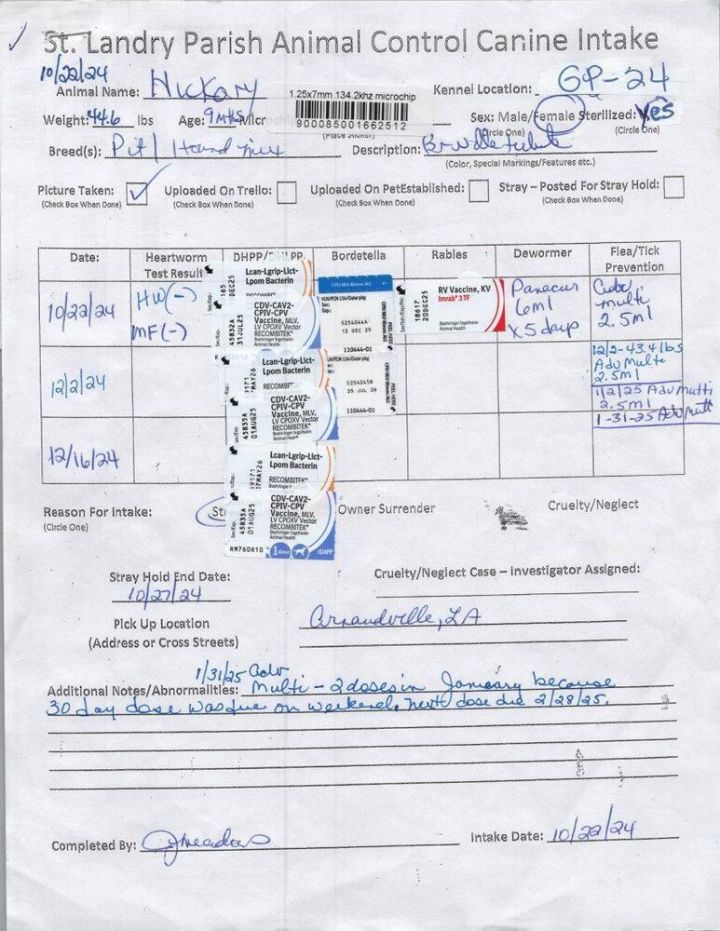 St. Landry Parish Animal Control Canine Intake
10/22/24
Animal Name: Hickory
1.25x7mm 134.2khz microchip
900085001662512
Kennel Location: GP-24
Weight: 44.6 lbs Age: 9 mths Micr
Sex: Male/Female Sterilized: Yes
(Circle One) (Circle One)
Breed(s): Pit / Hound mix Description: Brindle
(Color, Special Markings/Features etc.)
Picture Taken: Uploaded On Trello: Uploaded On PetEstablished: Stray – Posted For Stray Hold:
(Check Box When Done) (Check Box When Done) (Check Box When Done) (Check Box When Done)
Date: Heartworm Test Result DHPP/DHLPP Bordetella Rabies Dewormer Flea/Tick Prevention
10/22/24 HW(-) MF(-)
Lcan-Lgrip-Lict-
Lpom Bacterin
165
DEC25
CDV-CAV2-
CPIV-CPV
Vaccine, MLV,
LV CPOXV Vector
RECOMBITEK®
Boehringer Ingelheim
Animal Health
45832A
31JUL25
5254044A
12 DEC 25
110444-01
RV Vaccine, KV
Imrab® 3 TF
18617
20DEC25
Panacur
6ml
x 5 days
Adv
multi
2.5ml
12/2/24
Lcan-Lgrip-Lict-
Lpom Bacterin
RECOMBITEK
MAY26
CDV-CAV2-
CPIV-CPV
Vaccine, MLV,
LV CPOXV Vector
RECOMBITEK®
Boehringer Ingelheim
Animal Health
45835A
01AUG25
5254045B
25 JUL 26
110444-01
12/2-43.4 lbs
Adv Multi
2.5ml
1/2/25 Adv Multi
2.5ml
1-31-25 Adv Multi
12/16/24
Lcan-Lgrip-Lict-
Lpom Bacterin
RECOMBITEK®
Boehringer
19171
17MAY26
CDV-CAV2-
CPIV-CPV
Vaccine, MLV,
LV CPOXV Vector
RECOMBITEK®
Boehringer Ingelheim
Animal Health
45835A
01AUG25
RM760A10 1 dose IDAPP
Reason For Intake: Str Owner Surrender Cruelty/Neglect
(Circle One)
Stray Hold End Date:
10/27/24
Cruelty/Neglect Case – Investigator Assigned:
Pick Up Location
(Address or Cross Streets)
Arnaudville, LA
Additional Notes/Abnormalities: 1/31/25 Adv
Multi - 2 doses in January because
30 day dose was due on weekend. next dose due 2/28/25.
Completed By: Intake Date: 10/22/24